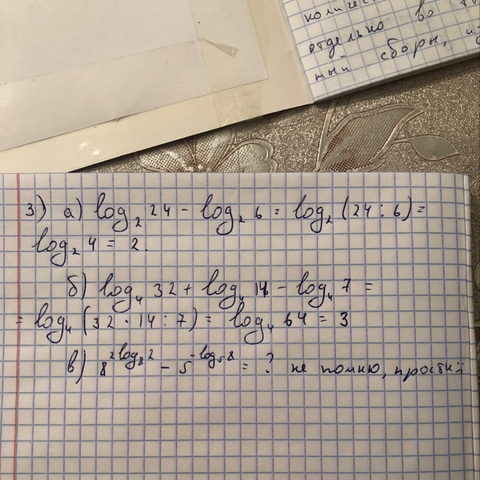 колич
отдельно во
тый сборы, и
3) а) log₂ 24 - log₂ 6 = log₂ (24 : 6) =
log₂ 4 = 2.
б) log₄ 32 + log₄ 14 - log₄ 7 =
= log₄ (32 · 14 : 7) = log₄ 64 = 3
в) 8^(2log₈2) - 5^(-log₅8) = ? не помню, прости :